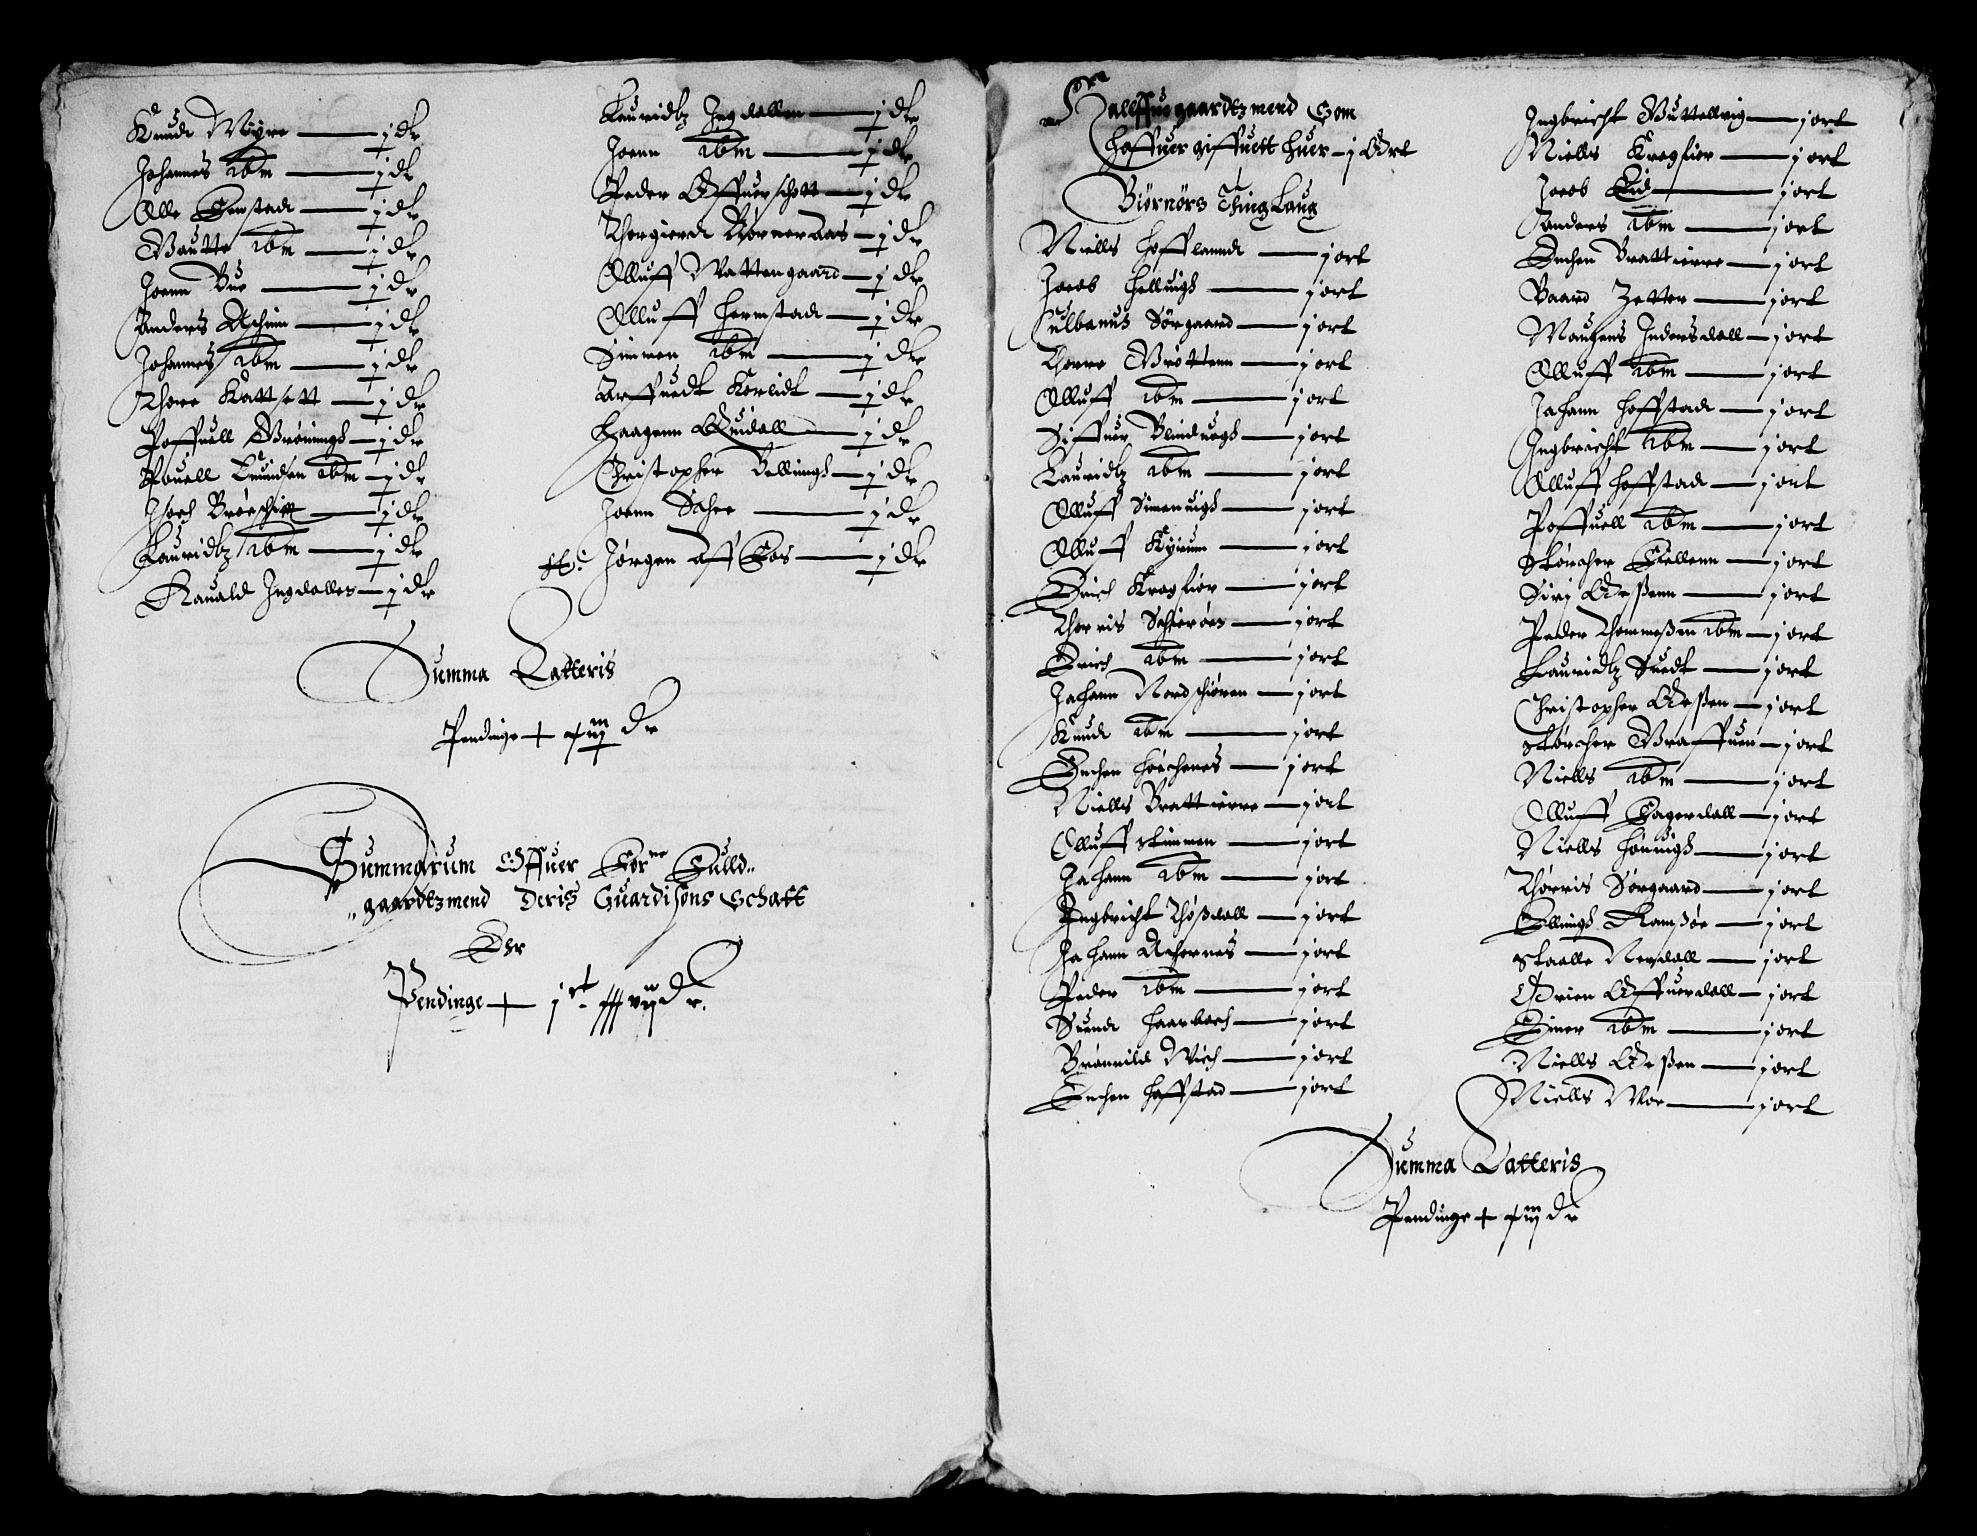 Knudt Møyre — j dr
Johannes ibm — j dr
Olle Emstadt — j dr
Gautte ibm — j dr
Joenn Bue — j dr
Anders Achim — j dr
Johannes ibm — j dr
Thore Kattsett — j dr
Poffuell Grønningh — j dr
Pouell Knudsen ibm — j dr
j dr
Lauridtz ibm — j dr
Rauald Ingdallen — j dr
Lauridtz Ingdallen — j dr
Joenn ibm — j dr
Peder Offuerschott — j dr
Thorgierdt — j dr
Olluff Wattengaard — j dr
Olluff Hermstadt — j dr
Simmen ibm — j dr
Arffuedt Korlidt — j dr
Haagenn Quidall — j dr
Christopher Vellungh — j dr
Joenn Schee — j dr
H: Jørgen aff Fos — j dr
Summa Latteris
Pendinge + dr
Summarum Offuer For:ne Fulld„
„gaardtzmend Deris Guardisons Schatt
Ehr
Pendinge + dr.
Halffuegaardtzmend Som
Haffuer giffuett huer — j Ort
Biørnørs Tinglaug
Niells Hofflanndt — j ort
Jacob Helluigh — j ort
Culbanus Sørgaard — j ort
Thorre Grøttenn — j ort
Olluff ibm — j ort
Siffuer Blinduegh — j ort
Lauridtz ibm — j ort
Olluff Simenuigh — j ort
Olluff Kyium — j ort
Erich Kragfior — j ort
Thorris Schierøen — j ort
Erich ibm — j ort
Jahann Nordschiøren — j ort
Knudt ibm — j ort
Enchen Høichenes — j ort
Niells Brattierre — j ort
Olluff Stimmen — j ort
Jahann ibm — j ort
Ingbricht Thøßdall — j ort
Jahann Achernes — j ort
Peder ibm — j ort
Suend Haarbach — j ort
Brønnild Wiich — j ort
Enchen Hoffstad — j ort
Ingbricht Guttelluig — j ort
Niells Kragfior — j ort
Jacob Eid — j ort
Anders ibm — j ort
Enchen Brattierre — j ort
Baard Zetter — j ort
Mougens Indersdall — j ort
Olluff ibm — j ort
Jahann Hoffstadt — j ort
Ingbricht ibm — j ort
Olluff Hoffstadt — j ort
Poffuell ibm — j ort
Størcher Fiellenn — j ort
Siri Oeßenn — j ort
Peder Thommeßen ibm — j ort
Lauridtz Suedt — j ort
Christopher Oeßen — j ort
Størcher Graffuen — j ort
Niells ibm — j ort
Olluff Fagerdall — j ort
Niells Honuigh — j ort
Thorris Sørgaard — j ort
Ellingh Ramsøe — j ort
Staalle Nerdall — j ort
Ørien Offuerdall — j ort
Einer ibm — j ort
Niells Oeßen — j ort
Niells Moe — j ort
Summa Latteris
Pendinge + dr